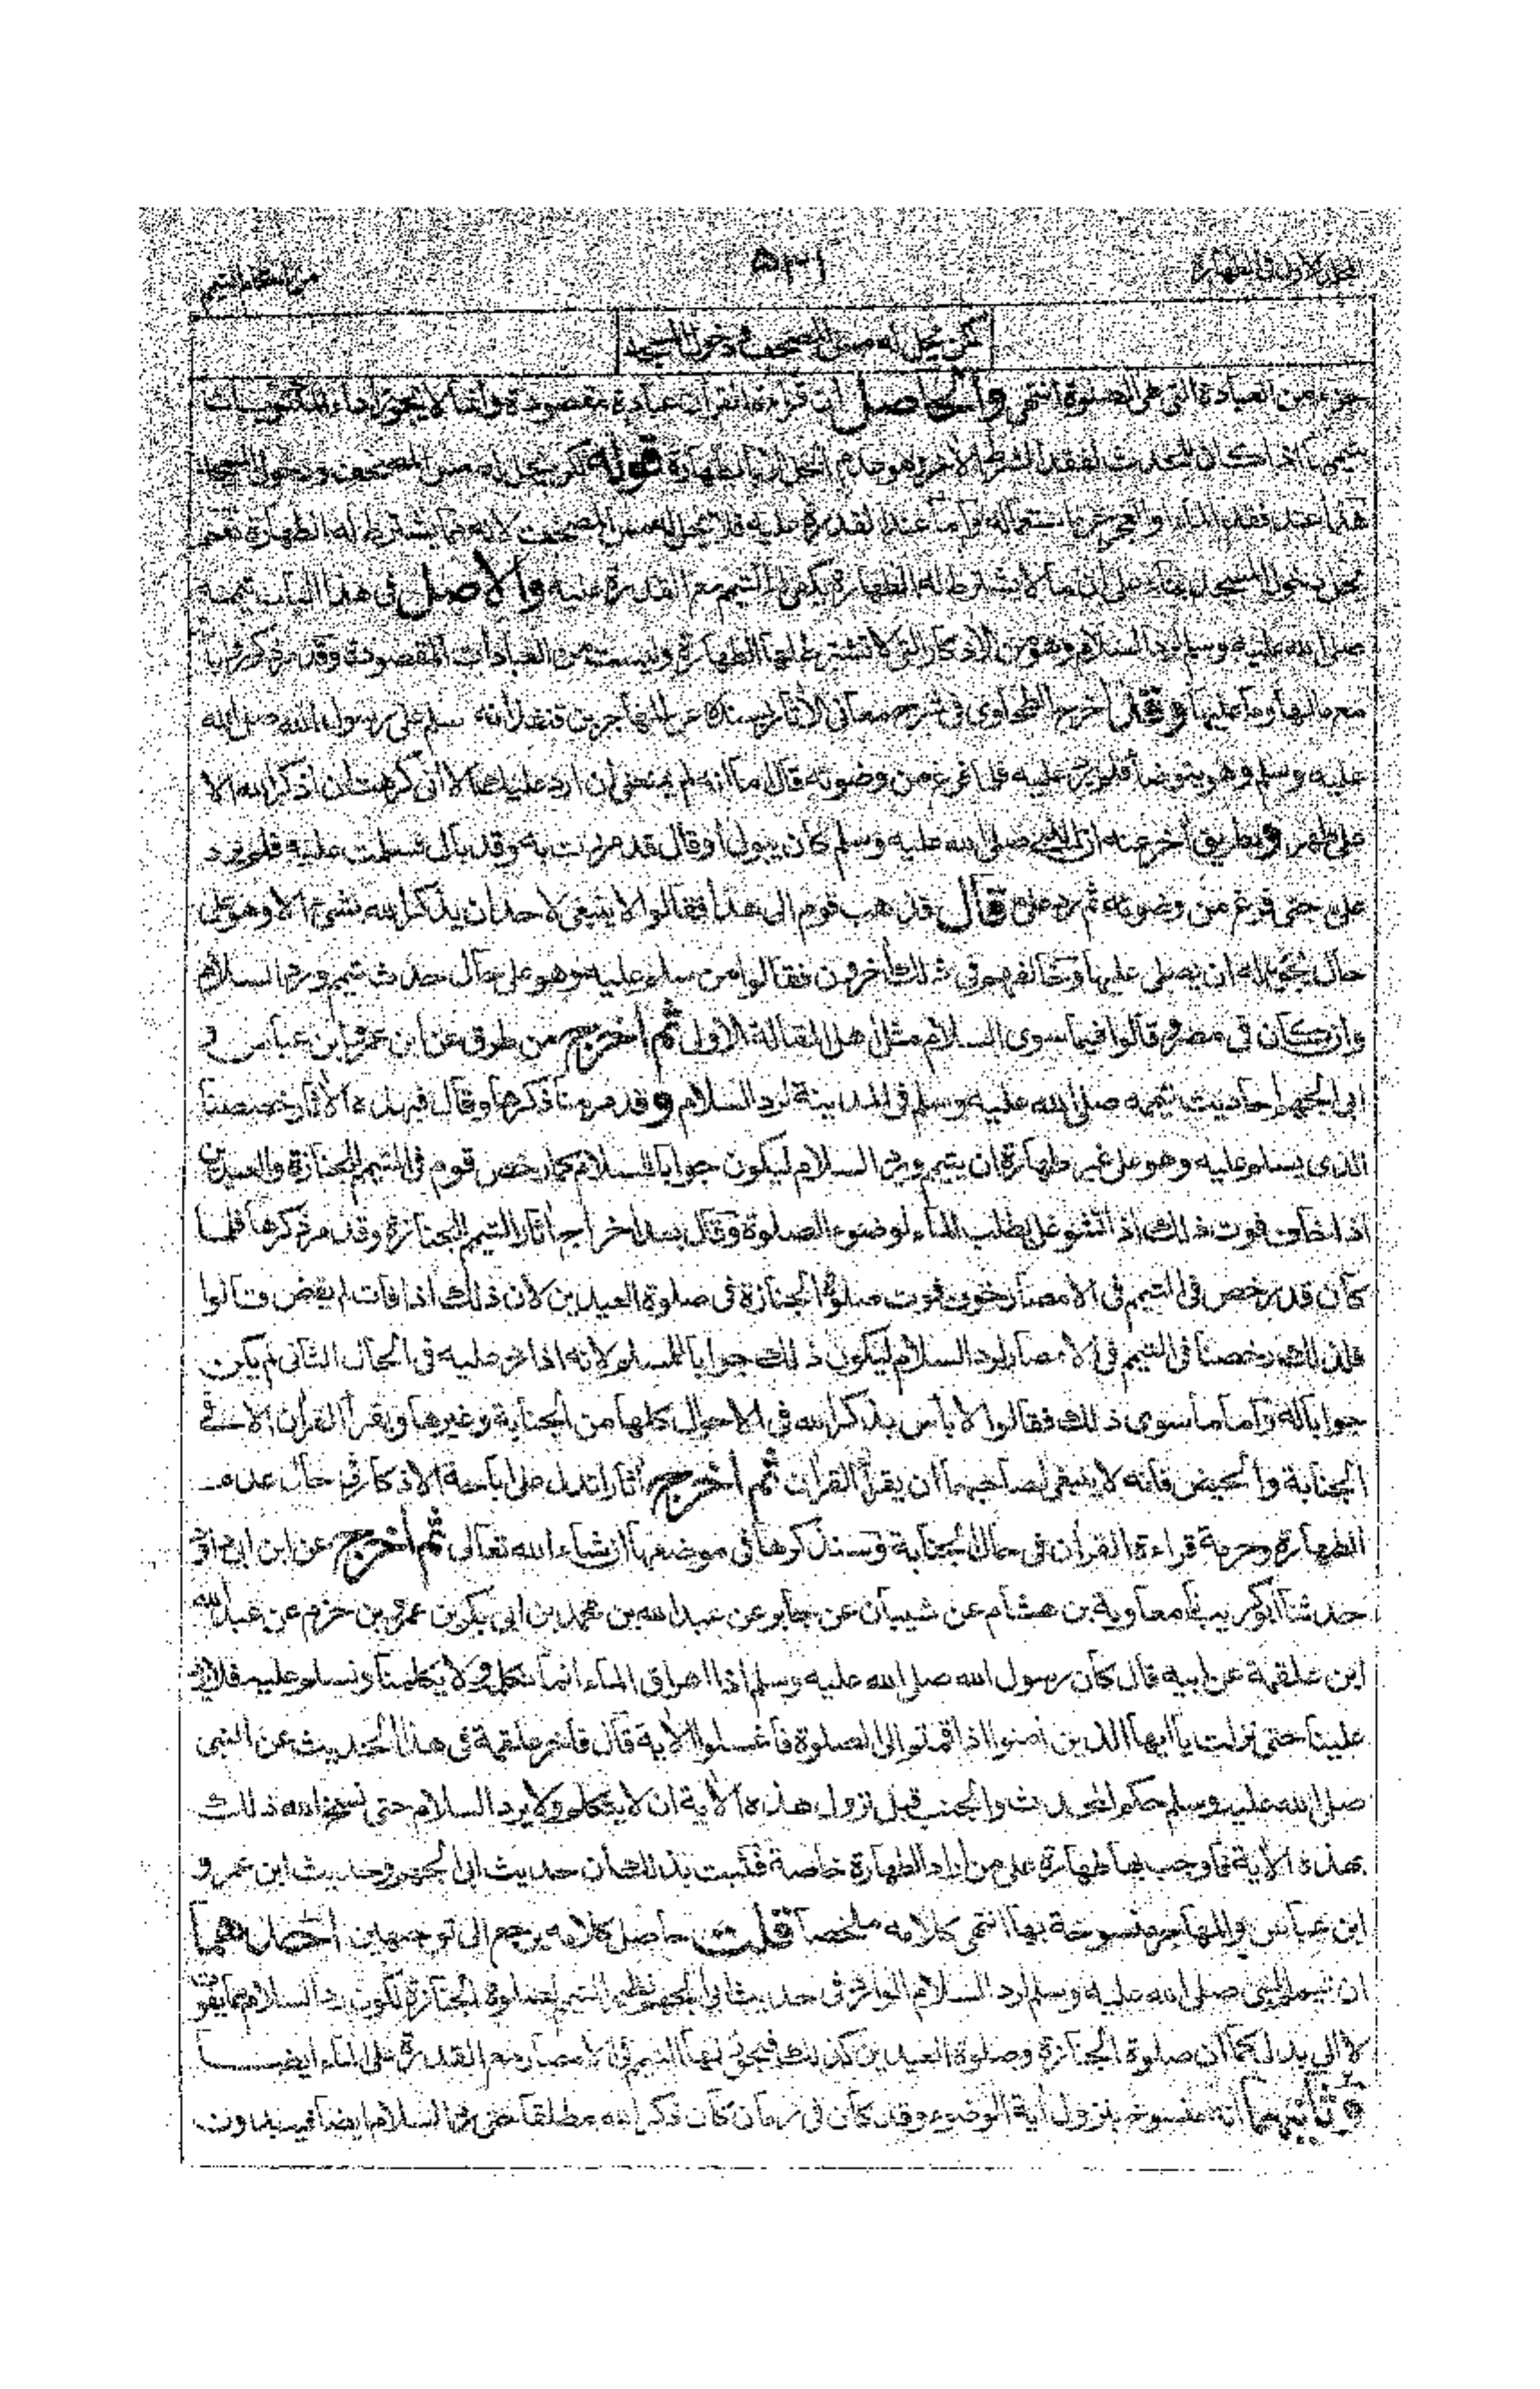 ٥٣١
لكن يحل له مس المصحف ودخول المسجد
جزء من العبادة التي هي الصلوة انتهى والحاصل ان قراءة القرأن عبادة مقصودة وانما لا يجوز اداء المكتوبات
بتيممها اذا كان للحدث لفقد الشرط الأخر وهو عدم الحل الا بالطهارة قوله لكن يحل له مس المصحف ودخول المسجد
هذا عند فقد الماء او العجز عن استعماله وأما عند القدرة عليه فلا يحل له مس المصحف لانه مما يشترط له الطهارة نعم
يحل دخول المسجد بناء على ان ما لا يشترط له الطهارة يكفي له التيمم مع القدرة عليه والاصل في هذا الباب تيممه
صلى الله عليه وسلم لرد السلام وهو من الاذكار التي لا تشترط لها الطهارة وليست من العبادات المقصودة وقد مر ذكرها
مع مالها وما عليها وقد اخرج الطحاوى في شرح معاني الأثار بسنده عن المهاجر بن قنفذ انه سلم على رسول الله صلى الله
عليه وسلم وهو يتوضأ فلم يرد عليه فلما فرغ من وضوئه قال ما انه لم يمنعني ان ارد عليك الا اني كرهت ان اذكر الله الا
على طهر وبطريق أخر عنه ان النبي صلى الله عليه وسلم كان يبول أو قال قد مررت به وقد بال فسلمت عليه فلم يرد
على حتى فرغ من وضوئه ثم رد على قال قد ذهب قوم الى هذا فقالوا لا ينبغي لاحد ان يذكر الله بشئ الا وهو على
حال يجوز له ان يصلى عليها وخالفهم في ذلك أخرون فقالوا من سلم عليه وهو على حال حدث تيمم ورد السلام
وان كان في مصر وقالوا فيما سوى السلام مثل اهل المقالة الاولى ثم اخرج من طرق عن ابن عمر وابن عباس و
ابي الجهم احاديث تيممه صلى الله عليه وسلم في المدينة لرد السلام وقد مر منا ذكرها وقال فبهذه الأثار رخصنا
الذي يسلم عليه وهو على غير طهارة ان يتيمم ويرد السلام ليكون جوابا للسلام كما رخص قوم في التيمم للجنازة والعيدين
اذا خاف فوت ذلك اذا تشوغل بطلب الماء لوضوء الصلوة وقال بعد اخراج أثار التيمم للجنازة وقد مر ذكرها فلما
كان قد رخص في التيمم في الامصار خوف فوت صلوة الجنازة في صلوة العيدين لان ذلك اذا فات لم يقض قالوا
فكذلك رخصنا في التيمم في الامصار لرد السلام ليكون ذلك جوابا للمسلم لانه اذا رد عليه في الحال الثاني لم يكن
جوابا له وأما ما سوى ذلك فقالوا لا باس بذكر الله في الاحوال كلها من الجنابة وغيرها ويقرأ القرأن الا في
الجنابة والحيض فانه لا ينبغي لصاحبهما ان يقرأ القرأن ثم أخرج أثارا تدل على اباحة الاذكار في حال عدم
الطهارة وحرمة قراءة القرأن في حال الجنابة وسنذكرها في موضعها ان شاء الله تعالى ثم أخرج عن ابن ابي داود
حدثنا ابو كريب نا معاوية بن هشام عن شيبان عن جابر عن عبد الله بن محمد بن ابي بكر بن عمرو بن حزم عن عبد الله
ابن علقمة عن ابيه قال كان رسول الله صلى الله عليه وسلم اذا اهراق الماء انما نكلمه ولا يكلمنا ونسلم عليه فلا يرد
علينا حتى نزلت يأايها الذين أمنوا اذا قمتم الى الصلوة فاغسلوا الأية قال فاخبر علقمة في هذا الحديث عن النبي
صلى الله عليه وسلم حكم المحدث والجنب قبل نزول هذه الأية ان لا يتكلم ولا يرد السلام حتى نسخ الله ذلك
بهذه الأية فأوجب بها طهارة على من اراد الطهارة خاصة فثبت بذلك ان حديث ابي الجهم وحديث ابن عمر و
ابن عباس والمهاجر منسوخة بها انتهى كلامه ملخصا قلت حاصل كلامه يرجع الى توجيهين احدهما
ان تيمم النبي صلى الله عليه وسلم لرد السلام الواقع في حديث ابي الجهم نظير التيمم لصلوة الجنازة لكون رد السلام مما يفوت
لا الى بدل كما ان صلوة الجنازة وصلوة العيدين كذلك فيجوز لها التيمم في الامصار مع القدرة على الماء ايضا
وثانيهما انه منسوخ بنزول أية الوضوء وقد كان في زمان كان ذكر الله مطلقا حتى رد السلام ايضا فيه بدون